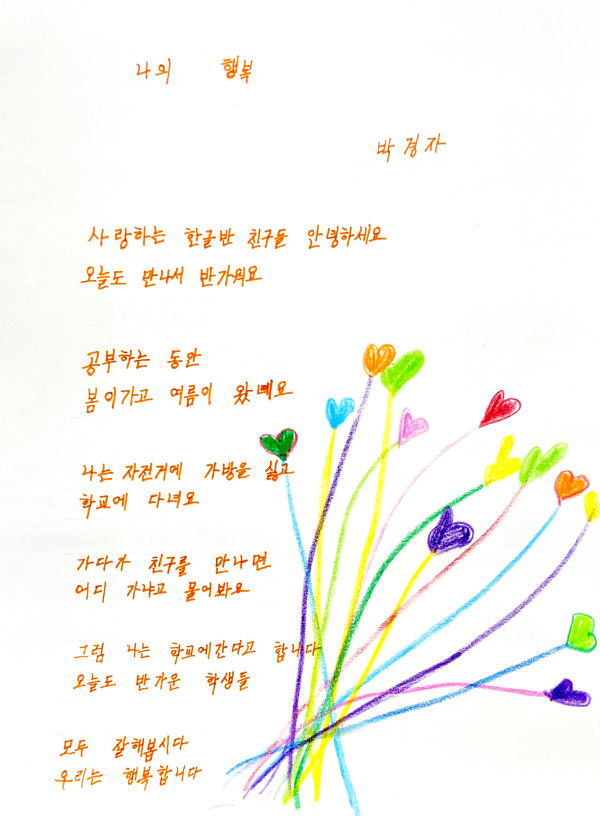 나의 행복
박경자
사랑하는 한글반 친구들 안녕하세요
오늘도 만나서 반가워요
공부하는 동안
봄이가고 여름이 왔네요
나는 자전거에 가방을 싫고
학교에 다녀요
가다가 친구를 만나면
어디 가냐고 물어봐요
그럼 나는 학교에간다고 합니다
오늘도 반가운 학생들
모두 잘해봅시다
우리는 행복합니다